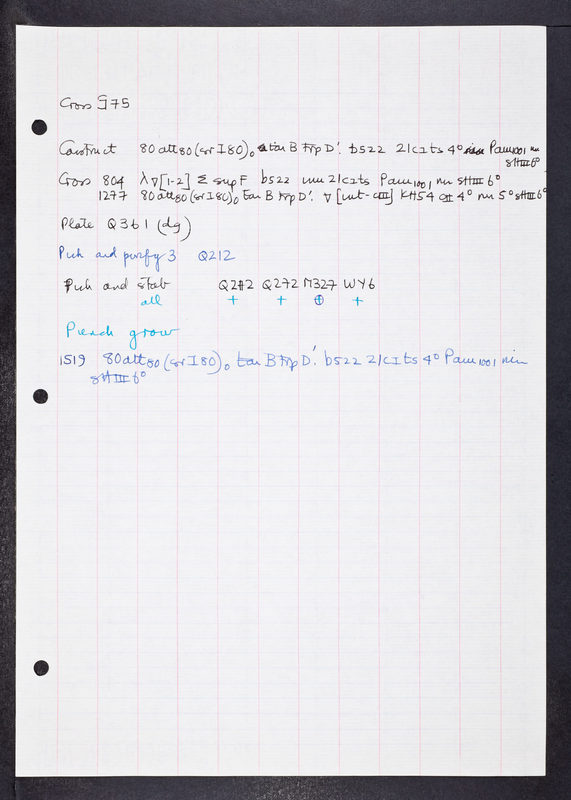 Cross G75
Construct 80 att80 (sr I 80)0 ton B trp D'. b522 21 cI ts 4° Pam1001 nin
sHIII 6°
Cross 804 λ∇[1-2] Σ sup F b522 nin 21 cI ts Pam1001 nin sHIII 6°
1277 80 att80 (sr I 80)0 ton B trp D'. ∇ [int-cIII] KH54 4° nin 5° sHIII 6°
Plate Q361 (dg)
Pick and purify 3 Q212
Pick and stab Q212 Q272 M327 WY6
all + + ⊕ +
Pick and grow
1519 80 att80 (sr I 80)0 ton B trp D'. b522 21 cI ts 4° Pam1001 nin
sHIII 6°